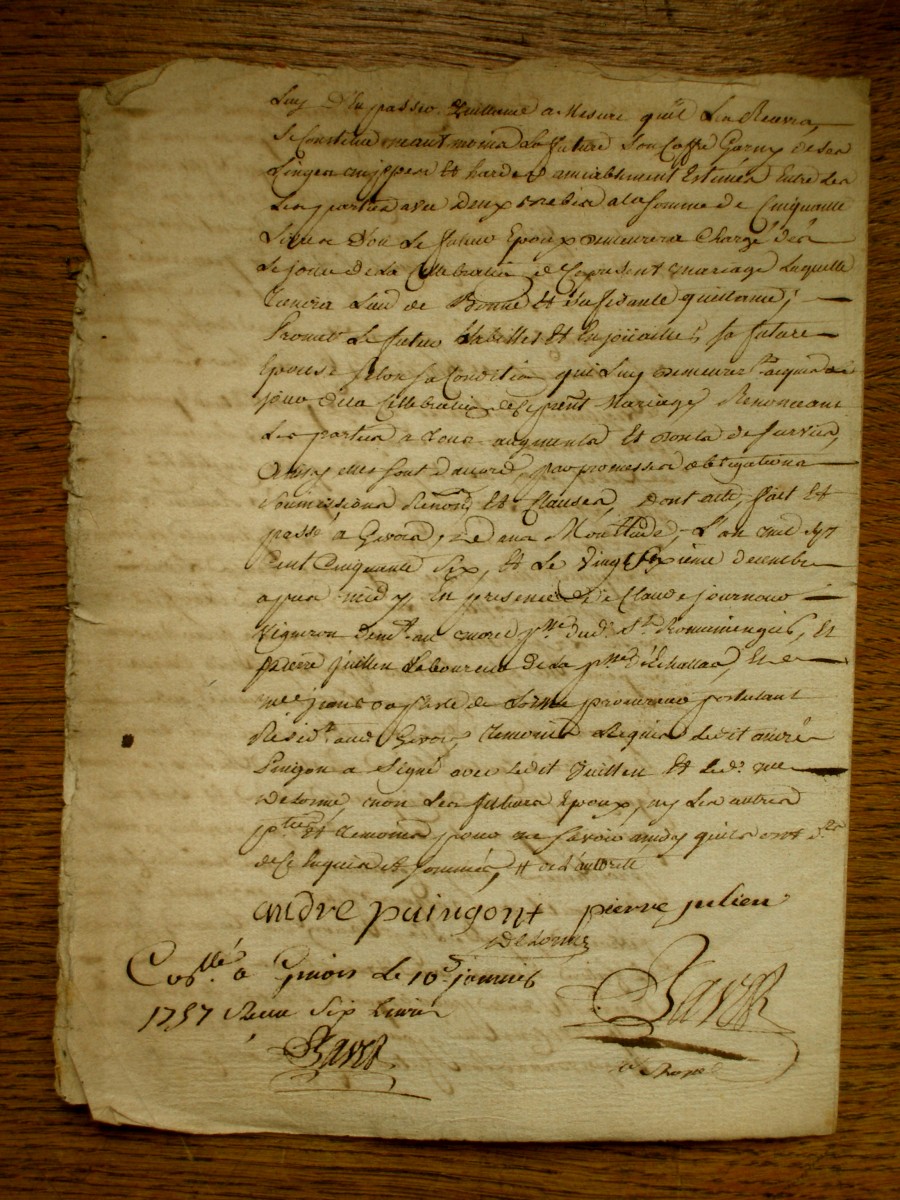 Luy d'en passer quittance a Mesure qu'il Les Recevra,
Se Constitue en ant la future son Coffre Garny de ses
Linges nippes et hardes amiablement Estimés Entre les
parties avec Deux a la somme de Cinquante
Livres D'ou Le futeur Epoux demeurera Chargé dès
Le jour de La Celebration de Ce present mariage Laquelle
Tiendra Lieu de Bonne et sufisante quittance;
Promet Le futeur habiller et Enjoüailler sa future
Epouse selon sa Condition qui Luy demeurera acquis du
jour de la Cellebration de Ce present Mariage Renonceant
Les parties a tous augments et de survies,
Ainsy elles sont d'accord, par promesses obligations
soumissions Renon et Clauses, dont acte, fait et
passé à Givors, L'an mil sept
Cent Cinquante Six, et Le Vingt Sixieme decembre
apres midy En presence de Claude journoud
Vigneron demt. au dud. St. Romainengiés, et
pierre juillen Laboureur de La d'Echallas, et de
me de Lorme procureur postulant
Résidt. aud. Givors, temoins Requis Ledit andré
Puigon a signé avec Ledit Juillen et Led. me
Delorme, non Les futeurs Epoux, ny les autres
pties et temoins pour ne savoir ainsy qu'ils ont
de Ce Enquis et sommés,
andre paingont pierre julien
Delorme
Conllé. a Givors le 10e. janvier
1757 Receu Six Livres